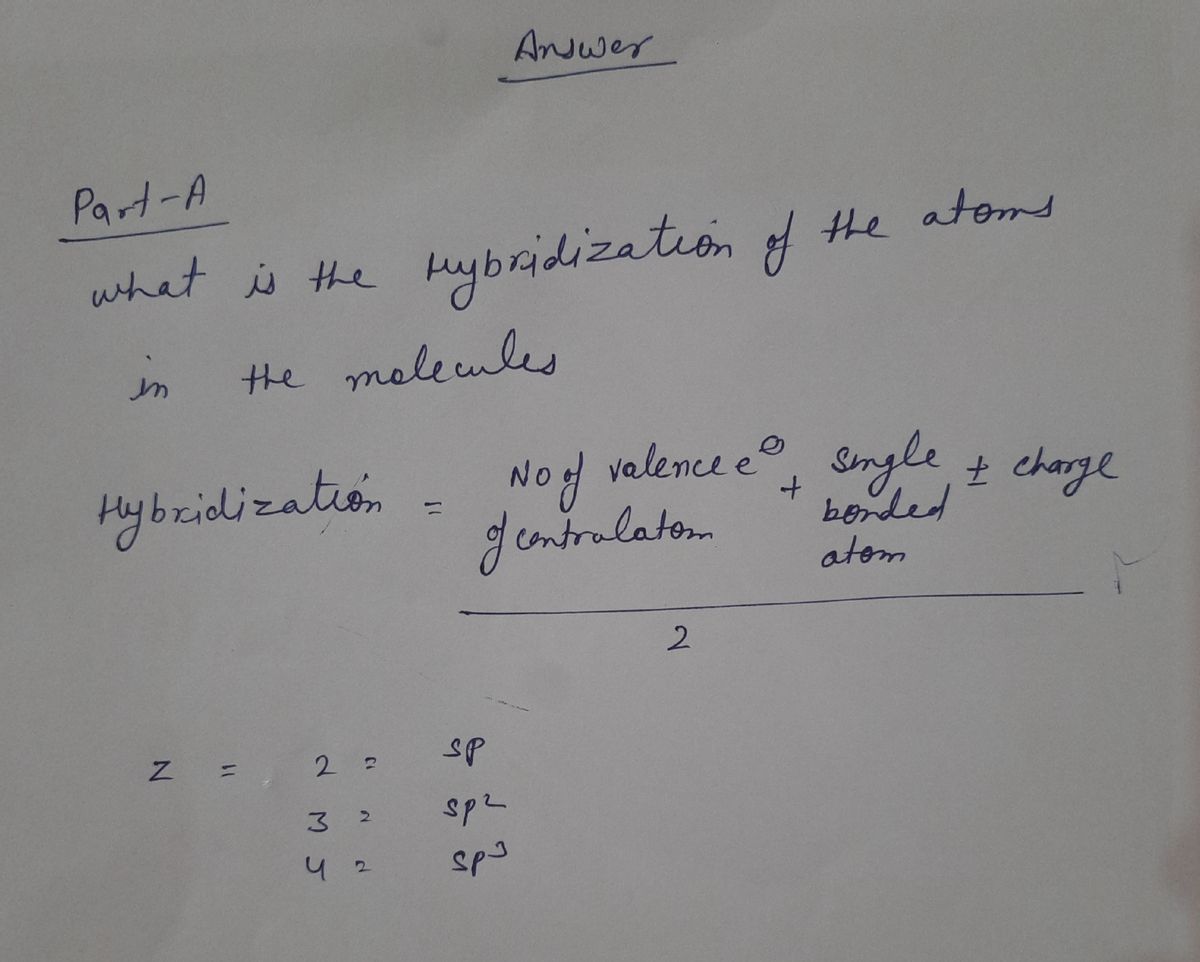 Answer
Part-A
what is the Hybridization of the atoms
in the molecules
Hybridization = No of valence e⊖ + single ± charge
of central atom bonded
atom
2
Z = 2 = sp
3 = sp²
4 = sp³